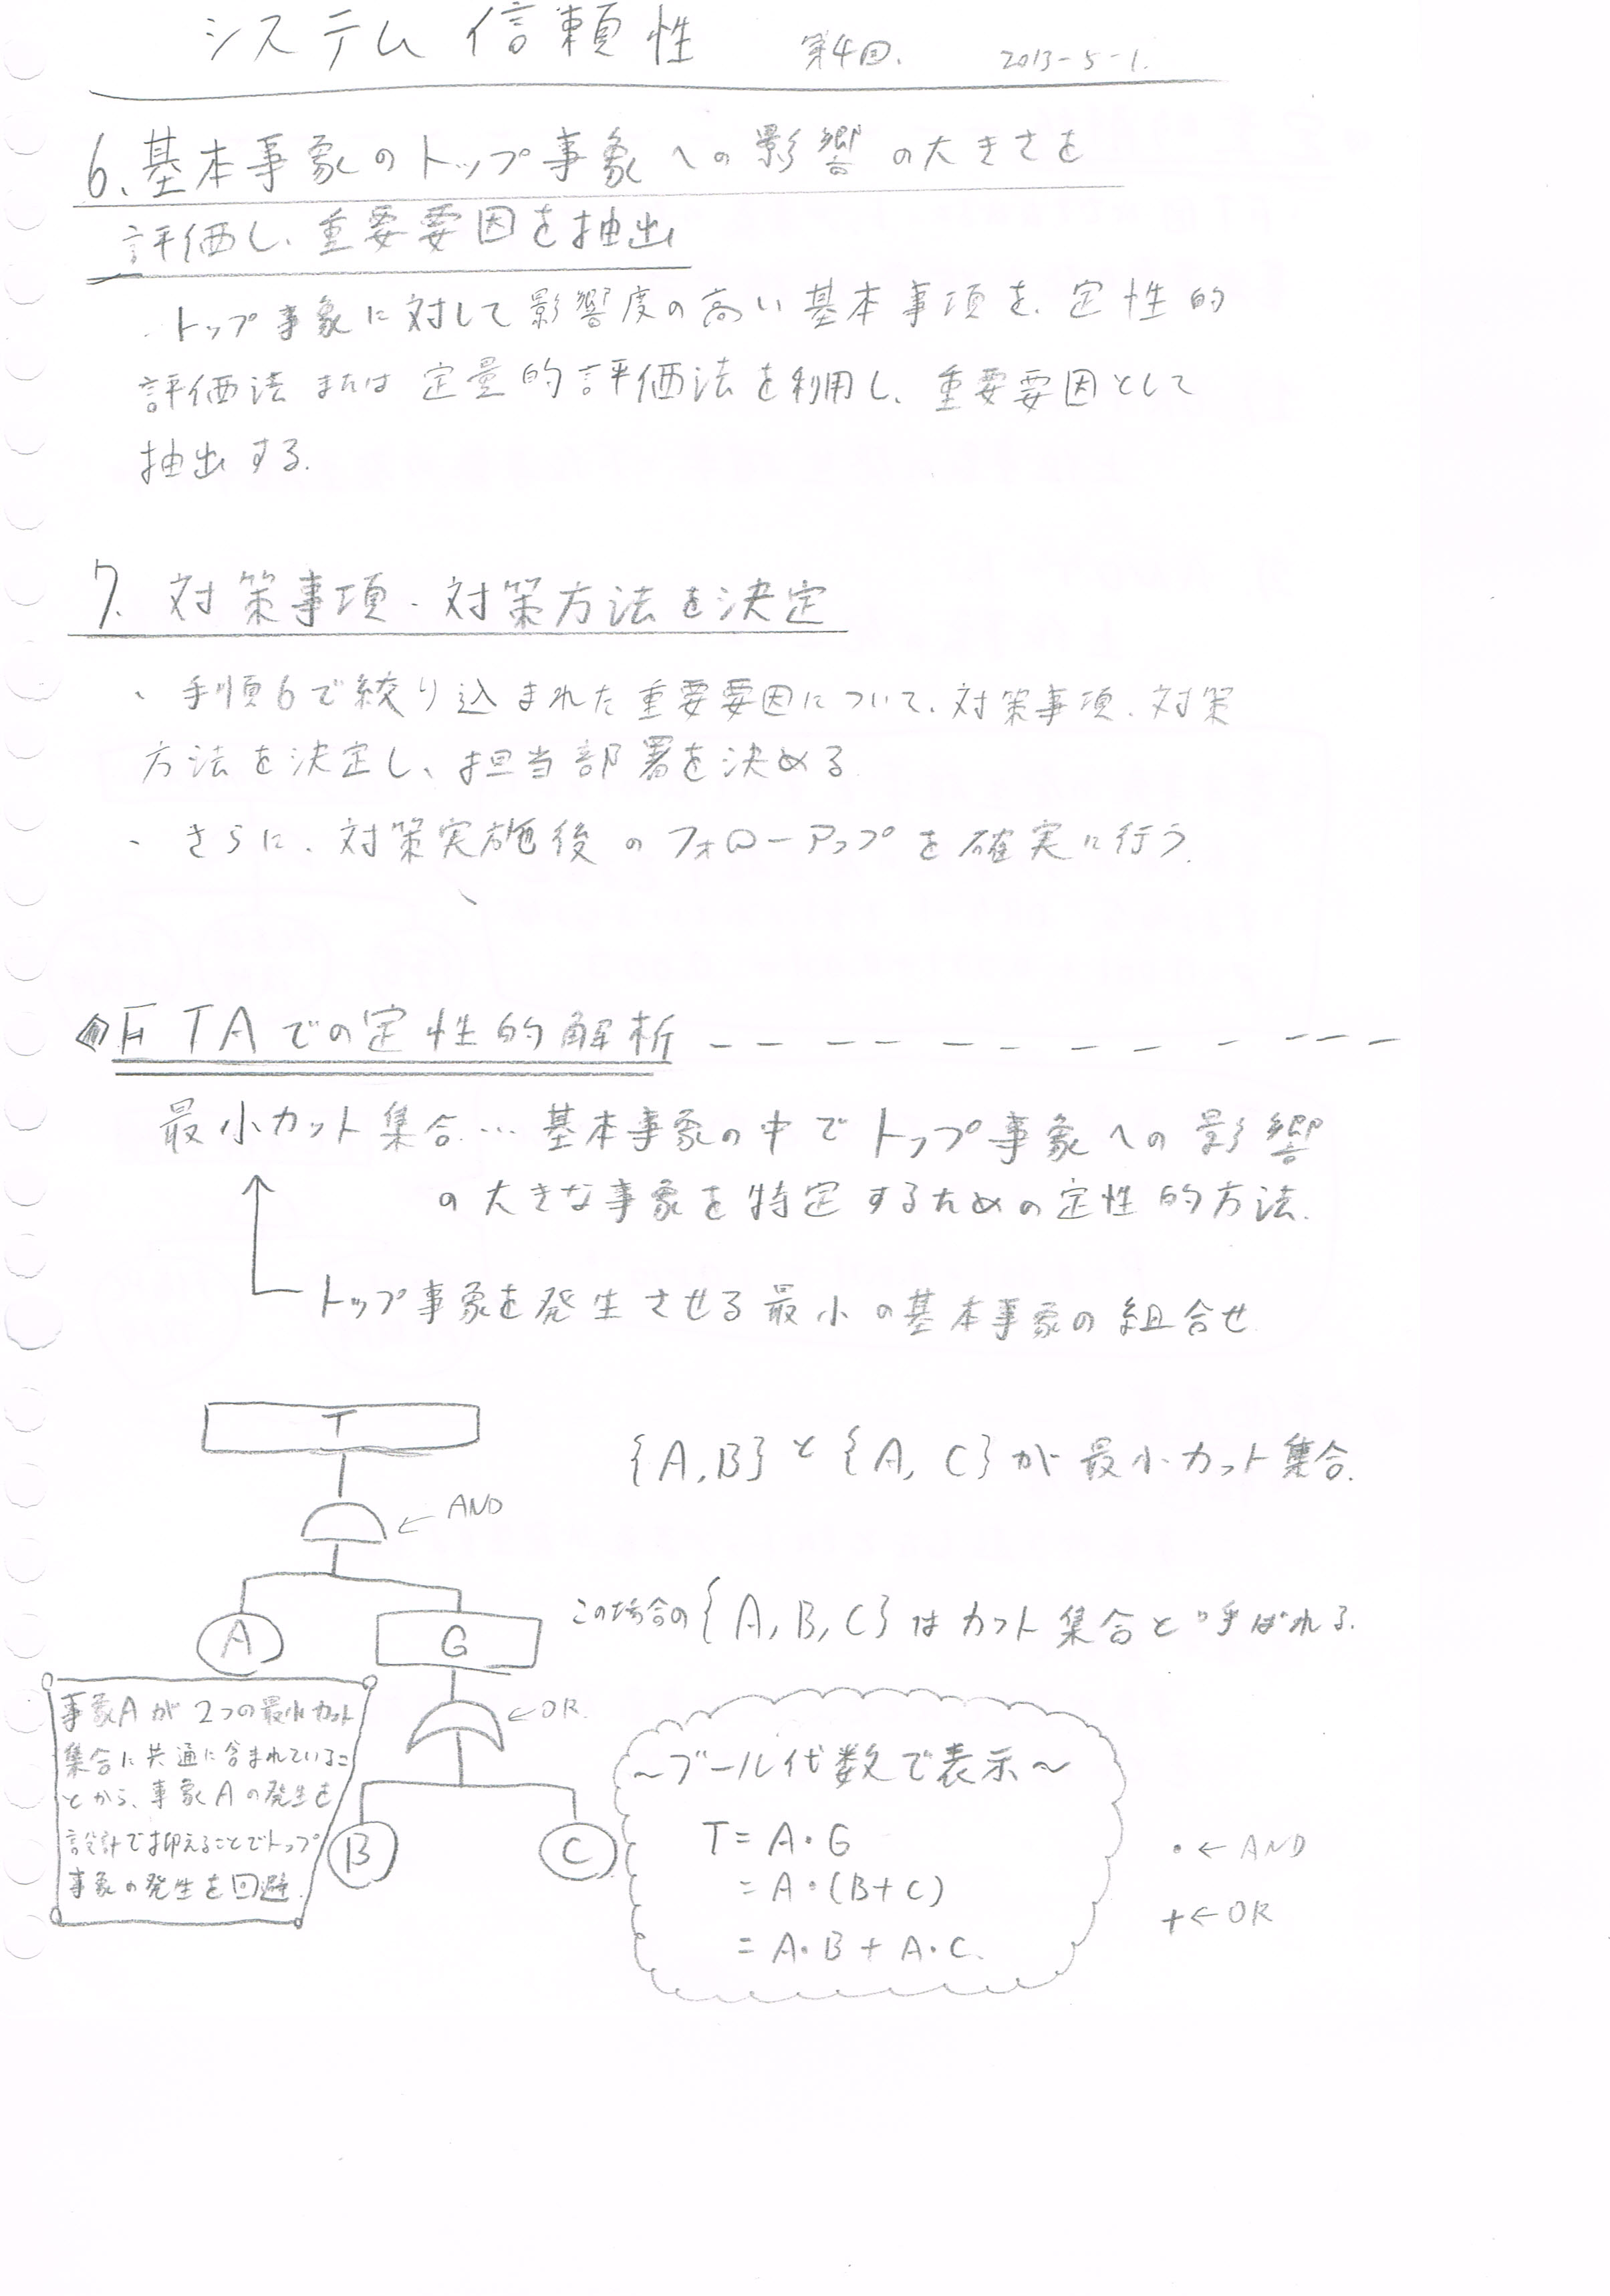 システム信頼性 第4回. 2013-5-1.
6. 基本事象のトップ事象への影響の大きさを
評価し、重要要因を抽出
・トップ事象に対して影響度の高い基本事項を、定性的
評価法または定量的評価法を利用し、重要要因として
抽出する.
7. 対策事項・対策方法を決定
・手順6で絞り込まれた重要要因について、対策事項、対策
方法を決定し、担当部署を決める.
・さらに、対策実施後のフォローアップを確実に行う.
FTAでの定性的解析
最小カット集合…基本事象の中でトップ事象への影響
の大きな事象を特定するための定性的方法.
トップ事象を発生させる最小の基本事象の組合せ
T
{A,B}と{A, C}が最小カット集合.
← AND
A
G
この場合の{A, B, C}はカット集合と呼ばれる.
事象Aが2つの最小カット
集合に共通に含まれているこ
とから、事象Aの発生を
設計で抑えることでトップ
事象の発生を回避.
← OR.
B
C
～ブール代数で表示～
T = A・G
= A・(B+C)
= A・B + A・C.
・← AND
+← OR